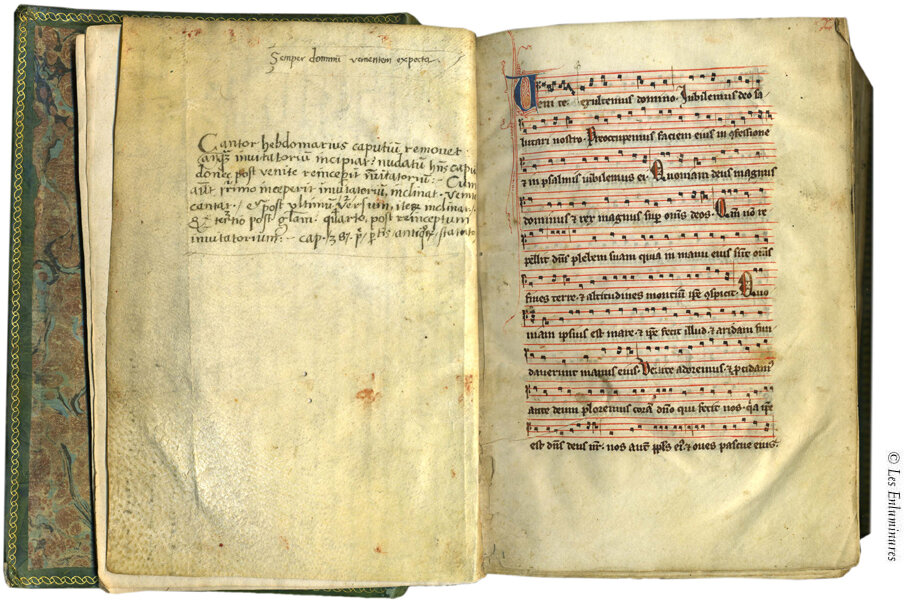 Semper dominū venientem expecta
Cantor hebdomarius caputiū removet
anq̄ȝ invitatoriū incipiat: nudatū hn̄s capu
donec post venite reinceperit invitatoriū: Cum
aūt primo inceperit invitatoriū, inclinat. Venit
cantar. / et post ultimū versum, iteȝ inclinat
tertio post glam. quarto, post reinceptum
invitatorium: cap. 38. p. ptis antiq statuto
Venite exultemus domino. Iubilemus deo sa
lutari nostro. Preoccupemus faciem eius in ꝯfessione
⁊ in psalmis iubilemus ei. Quoniam deus magnus
dominus ⁊ rex magnus sup̄ om̄s deos. Qm̄ nō re
pellit dn̄s plebem suam quia in manu eius sūt om̄s
fines terre. ⁊ altitudines montiū ip̄e ꝯspicit. Quo
niam ipsius est mare. ⁊ ip̄e fecit illud. ⁊ aridam fun
daverunt manus eius. Venite adoremus. ⁊ ꝓcidamꝰ
ante deum ploremus corā dn̄o qui fecit nos. q̄a ip̄e
est dn̄s deus nr̄. nos aut̄ ppl̄s eiꝰ. ⁊ oves pascue eius.
© Les Enluminures